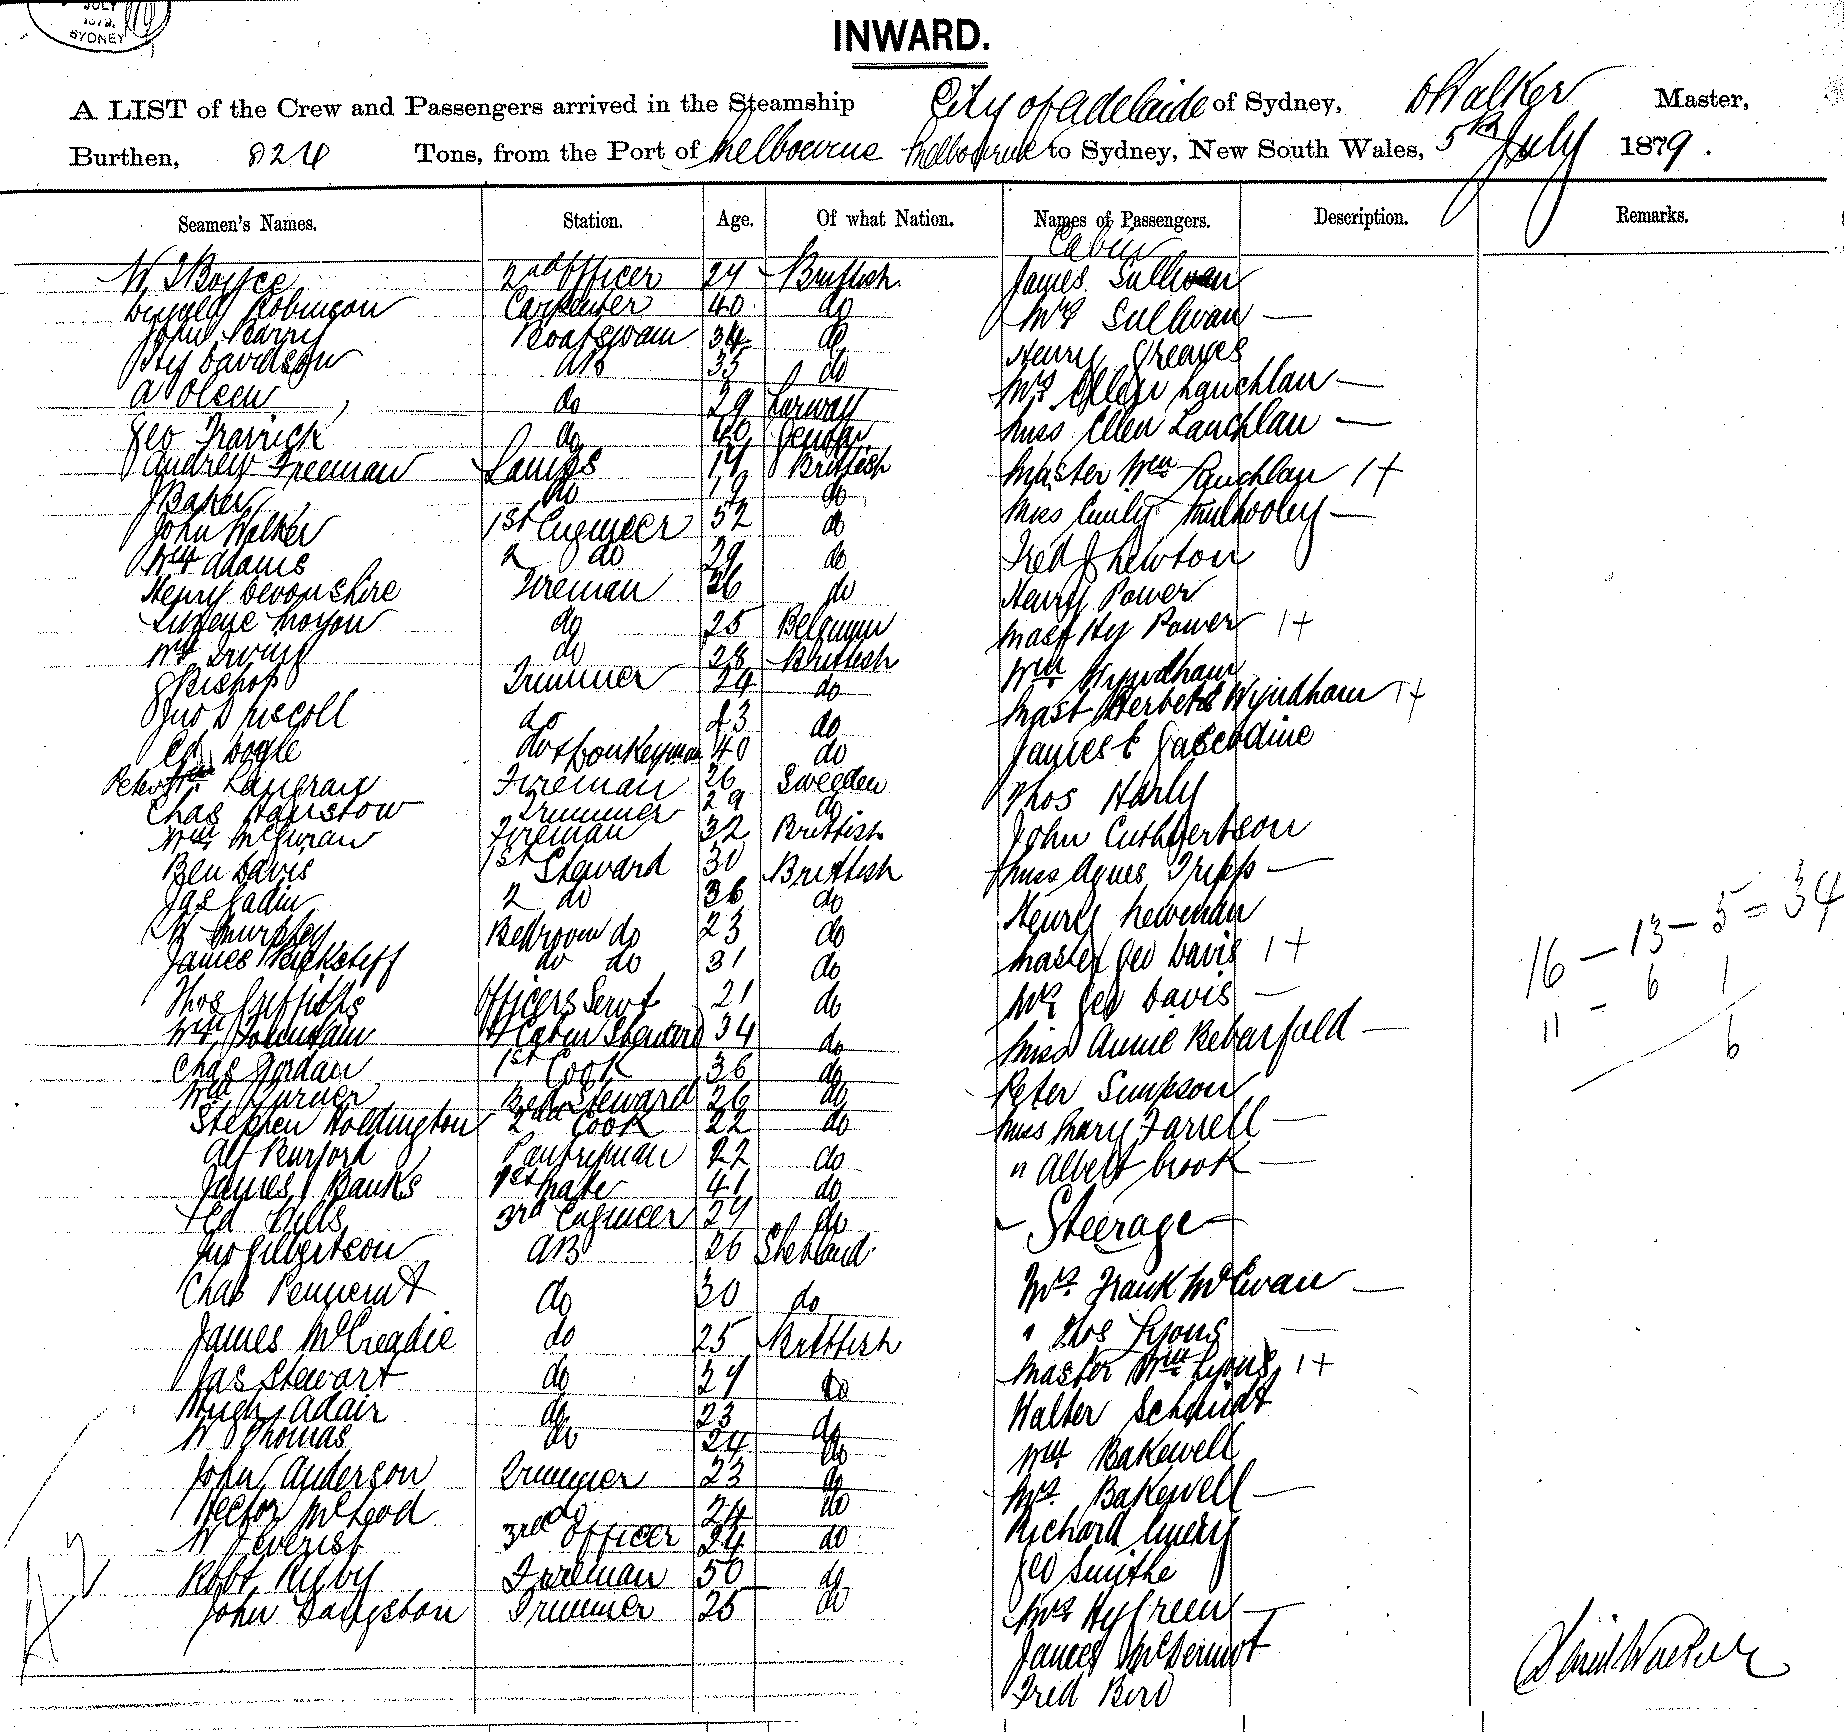 JULY
1879.
SYDNEY
INWARD.
A LIST of the Crew and Passengers arrived in the Steamship City of Adelaide of Sydney, D Walker Master,
Burthen, 824 Tons, from the Port of Melbourne Melbourne to Sydney, New South Wales, 5th July 1879.
Seamen's Names. Station. Age. Of what Nation. Names of Passengers. Description. Remarks.
Cabin
W J Boyce 2nd Officer 24 Brittish James Sullivan
Robinson Carpenter 40 do Mrs Sullivan —
John Barry Boatswain 34 do Henry Greaves
Davidson AB 35 do Mrs Ellen Lauchlan —
A Olsen do 29 Norway Miss Ellen Lauchlan —
Geo do 40 Master Wm Lauchlan 1+
Andrew Freeman Lamps 17 Brittish Miss Emily Mulhooley —
J Baker do 19 do Fred J Newton
John Walker 1st Engineer 52 do Henry Power
Wm Adams 2 do 29 do Mast Hy Power 1+
Henry Devonshire Fireman 36 do Wm Wyndham
Eugene Moyon do 25 Belgium Mast Herbert Wyndham 1+
Wm Irving do 28 Brittish James E Gascodine
J Bishop Trimmer 24 do Thos Harly
Jno D McColl do 43 do John Cuthbertson
Ed Bogle do & Donkeyman 40 do Miss Agnes Tripp —
Peter Fireman 26 Sweeden Henry Newman
Chas Hairstow Trimmer 29 do Master Geo Davis 1+
Wm Fireman 32 Brittish Mrs Geo Davis —
Ben Davis 1st Steward 30 Brittish Miss Annie —
Jas 2 do 36 do Peter Simpson
W Murphy Bedroom do 23 do Miss Mary Farrell —
James do do 31 do " Albert brook —
Thos Griffiths Officers Servt 21 do — Steerage —
Wm Cabin Steward 34 do Mrs Frank McEwan —
Chas Jordan 1st Cook 36 do " Thos Lyons —
Wm Turner Bed Steward 26 do Master Wm Lyons 1+
Stephen Holdington 2nd Cook 22 do Walter Schmidt
Alf Burford Pantryman 22 do Wm Bakewell
James Banks 1st Mate 41 do Mrs Bakewell —
Ed Hills 3rd Engineer 29 do Richard Emery
Jno Gilbertson AB 26 Shetland Geo Smithe
Chas do 30 do Mrs Hy Green —
James McCreadie do 25 Brittish James McDermot
Jas Stewart do 27 do Fred Bird
Hugh Adair do 23 do
W Thomas do 24 do
John Anderson Trimmer 23 do
Hector McLeod do 24 do
W J Everist 3rd Officer 24 do
Robt Rigby Fireman 50 do
John Langston Trimmer 25 do
16 — 13 — 5 = 34
11 - 6 1
6
David Walker